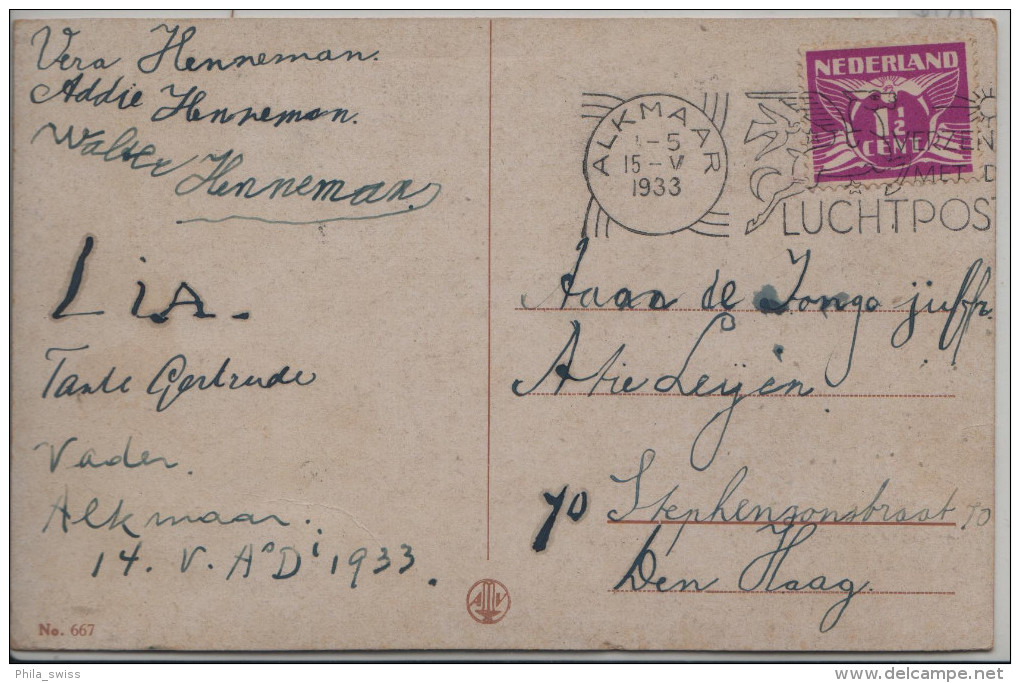 Vera Henneman.
Addie Henneman.
Walter
Henneman
LiA.
Tante Gertrude
Vader.
Alkmaar.
14. V. A°Di 1933.
No. 667
NEDERLAND
1½
CENT
ALKMAAR
-5
15-V
1933
VERZEN
MET D
LUCHTPOST
Aan de Jonge juffr.
Atie Leijen
70 Stephensonstraat 70
Den Haag.
AMV
Phila_swiss
delcampe.net